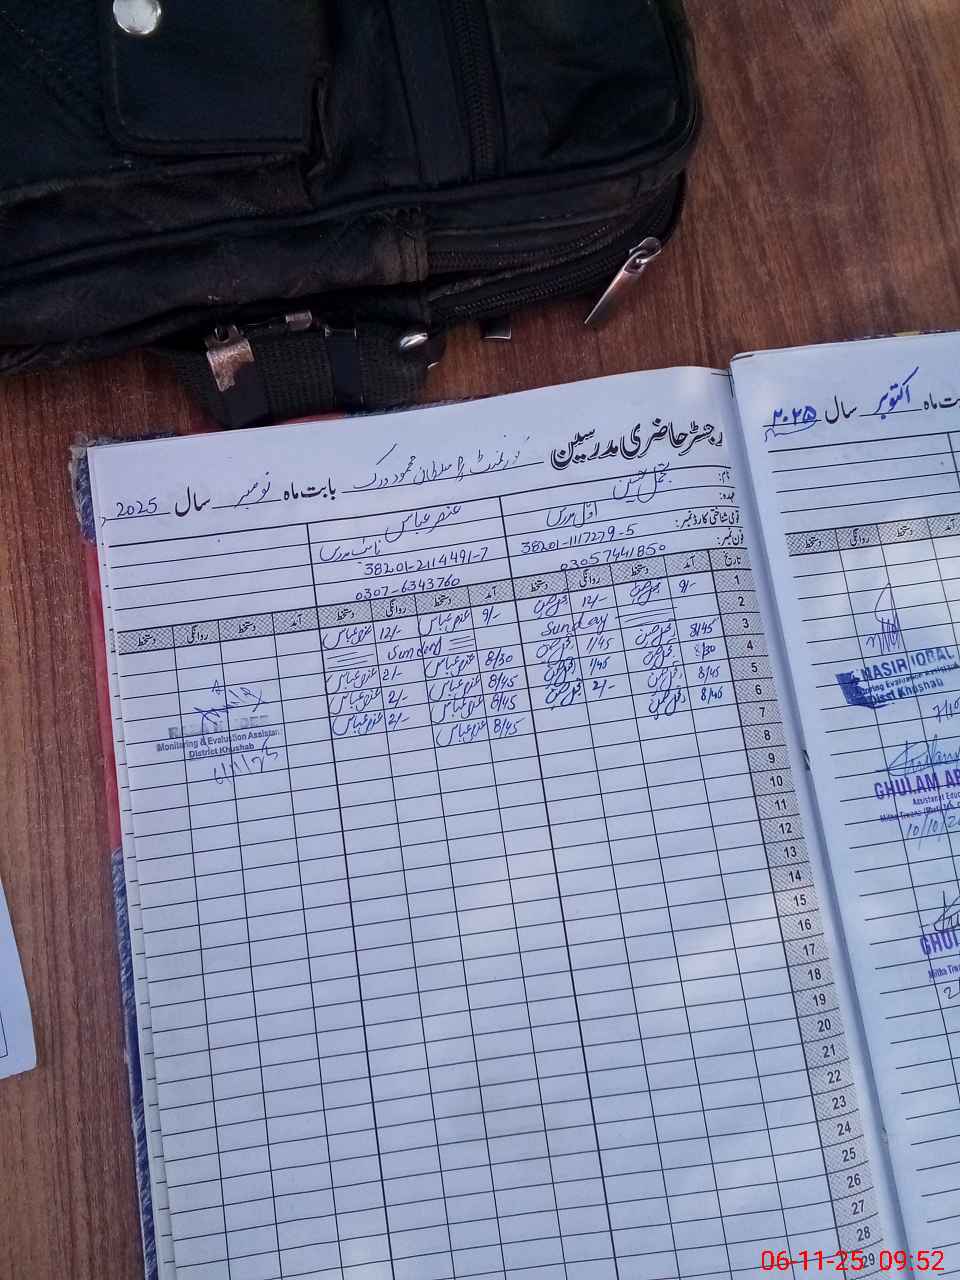 رجسٹر حاضری مدرسین
بابت ماہ نومبر سال 2025
نام: تجمل حسین
عنصر عباس
عہدہ: اول مدرس
نائب مدرس
قومی شناختی کارڈ نمبر: 38201-1117279-5
38201-2114491-7
فون نمبر: 03057441850
0307-6343760
تاریخ آمد دستخط روانگی دستخط آمد دستخط روانگی دستخط آمد دستخط روانگی دستخط
1 9/- 12/- 9/- عنصر عباس 12/- عنصر عباس
2 Sunday Sunday
3 8/45 1/45 8/30 عنصر عباس 2/- عنصر عباس
4 8/30 1/45 8/45 عنصر عباس 2/- عنصر عباس
5 8/45 2/- 8/45 عنصر عباس 2/- عنصر عباس
6 8/45 8/45 عنصر عباس
7
8
9
10
11
12
13
14
15
16
17
18
19
20
21
22
23
24
25
26
27
28
29
Monitoring & Evaluation Assistant
District Khushab
6/11/25
بابت ماہ اکتوبر سال ۲۰۲۵
دستخط روانگی دستخط
NASIR IQBAL
Monitoring Evaluation Assistant
Distt Khushab
GHULAM AB
10/10/20
GHUL
06-11-25 09:52